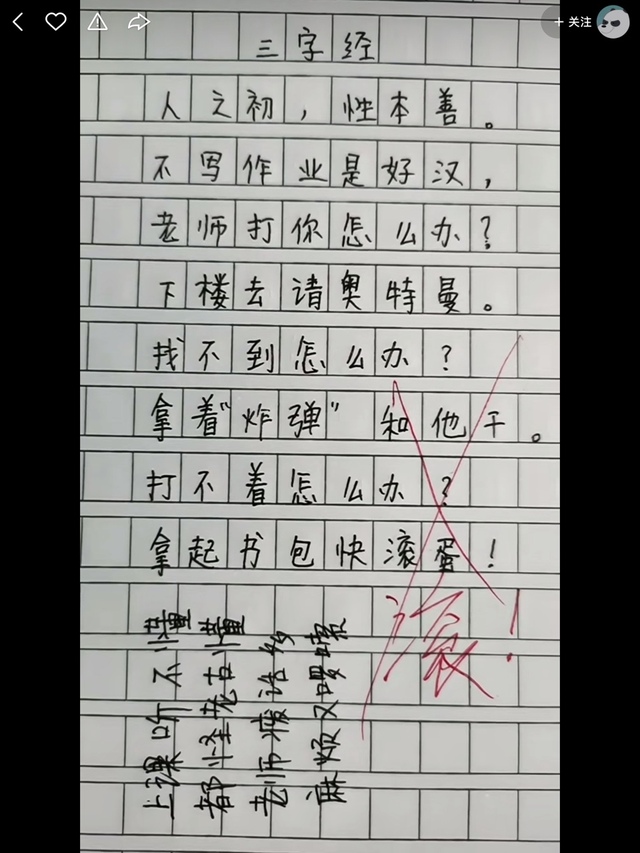 + 关注
三字经
人之初，性本善。
不写作业是好汉，
老师打你怎么办？
下楼去请奥特曼。
找不到怎么办？
拿着“炸弹”和他干。
打不着怎么办？
拿起书包快滚蛋！
滚！
上课听不懂
都怪老古懂
老师废话多
麻烦又啰嗦